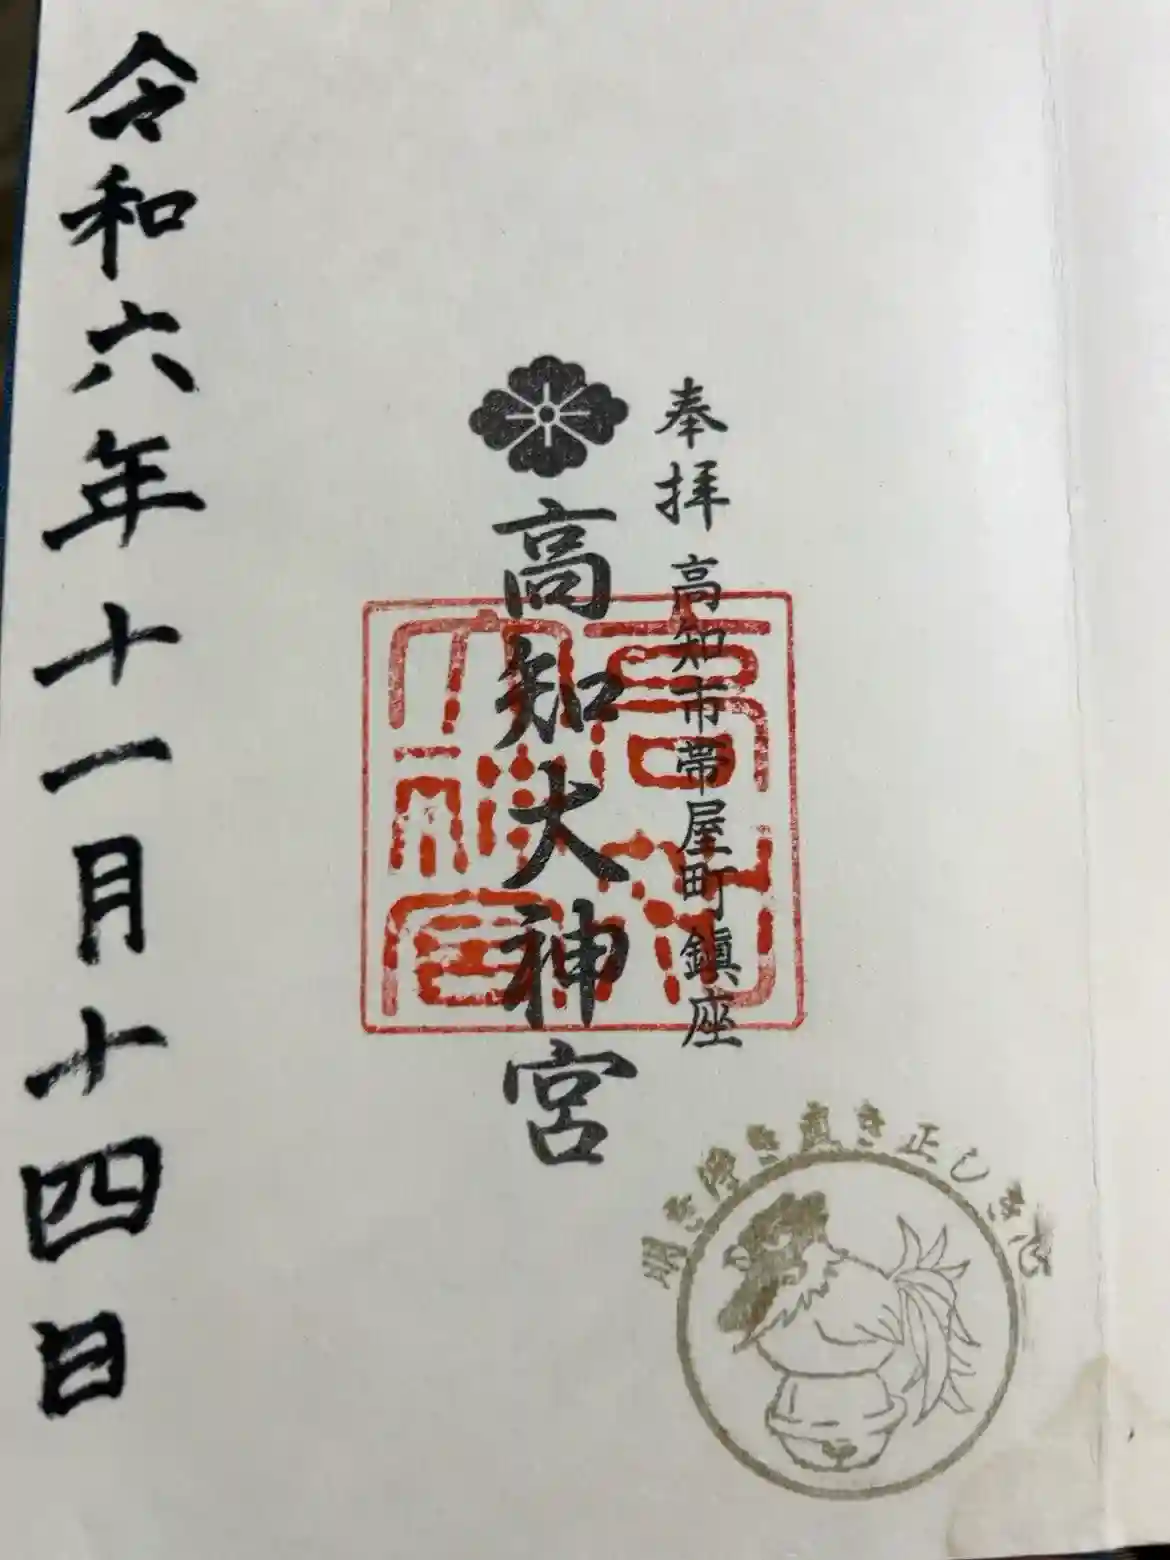 奉拝 高知市帯屋町鎮座
高知大神宮
令和六年十一月十四日
高知大神宮
明き浄き直き正しき心